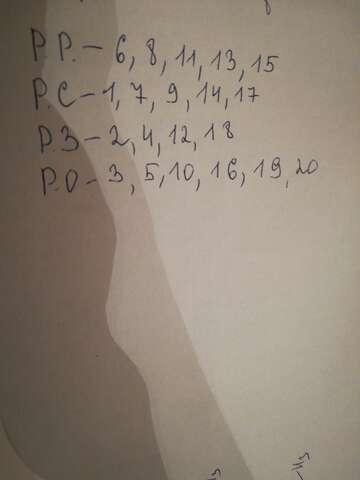 Р.Р. – 6, 8, 11, 13, 15
Р.С – 1, 7, 9, 14, 17
Р.З – 2, 4, 12, 18
Р.О – 3, 5, 10, 16, 19, 20